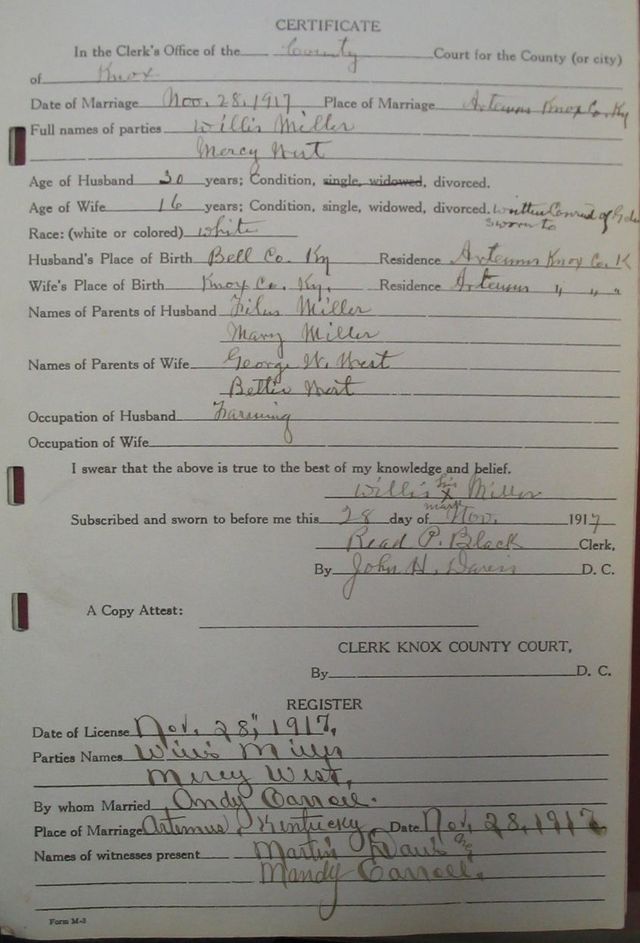 CERTIFICATE
In the Clerk's Office of the County Court for the County (or city)
of Knox
Date of Marriage Nov. 28, 1917 Place of Marriage Artemus Knox Co. Ky
Full names of parties Willis Miller
Mercy West
Age of Husband 30 years; Condition, single, widowed, divorced.
Age of Wife 16 years; Condition, single, widowed, divorced. written Consent of
sworn to
Race: (white or colored) white
Husband's Place of Birth Bell Co. Ky Residence Artemus Knox Co. K
Wife's Place of Birth Knox Co. Ky. Residence Artemus " " "
Names of Parents of Husband Miller
Mary Miller
Names of Parents of Wife George W. West
Bettie West
Occupation of Husband Farming
Occupation of Wife
I swear that the above is true to the best of my knowledge and belief.
his
Willis X Miller
mark
Subscribed and sworn to before me this 28 day of Nov. 1917
Read P. Black Clerk,
By John H. Davis D. C.
A Copy Attest:
CLERK KNOX COUNTY COURT,
By D. C.
REGISTER
Date of License Nov. 28", 1917.
Parties Names Willis Miller
Mercy West.
By whom Married Andy Carroll.
Place of Marriage Artemus, Kentucky Date Nov. 28, 1917
Names of witnesses present Martin Davis &
Mandy Carroll.
Form M-3